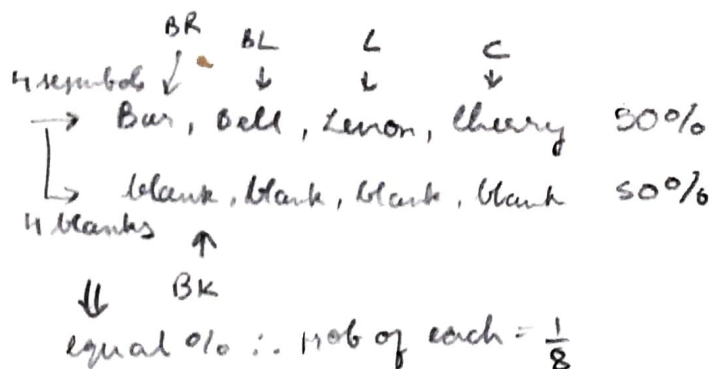 BR BL L C
4 symbols
→ Bar, Bell, Lemon, Cherry 50%
→ blank, blank, blank, blank 50%
4 blanks
BK
equal % ∴ prob of each = 1/8